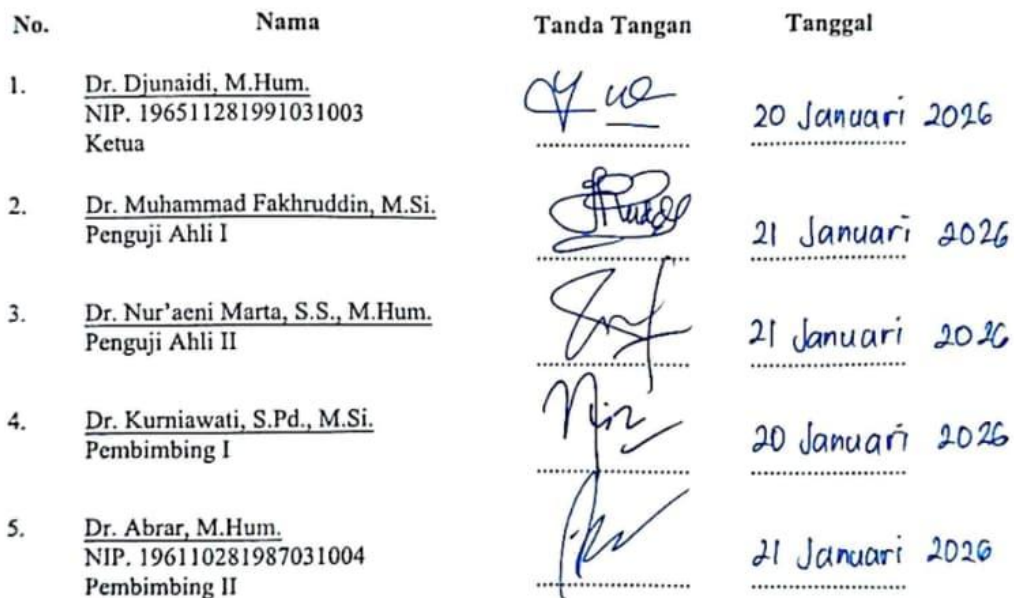 No. Nama Tanda Tangan Tanggal
1. Dr. Djunaidi, M.Hum.
NIP. 196511281991031003 20 Januari 2026
Ketua
2. Dr. Muhammad Fakhruddin, M.Si.
Penguji Ahli I 21 Januari 2026
3. Dr. Nur'aeni Marta, S.S., M.Hum.
Penguji Ahli II 21 Januari 2026
4. Dr. Kurniawati, S.Pd., M.Si.
Pembimbing I 20 Januari 2026
5. Dr. Abrar, M.Hum.
NIP. 196110281987031004 21 Januari 2026
Pembimbing II